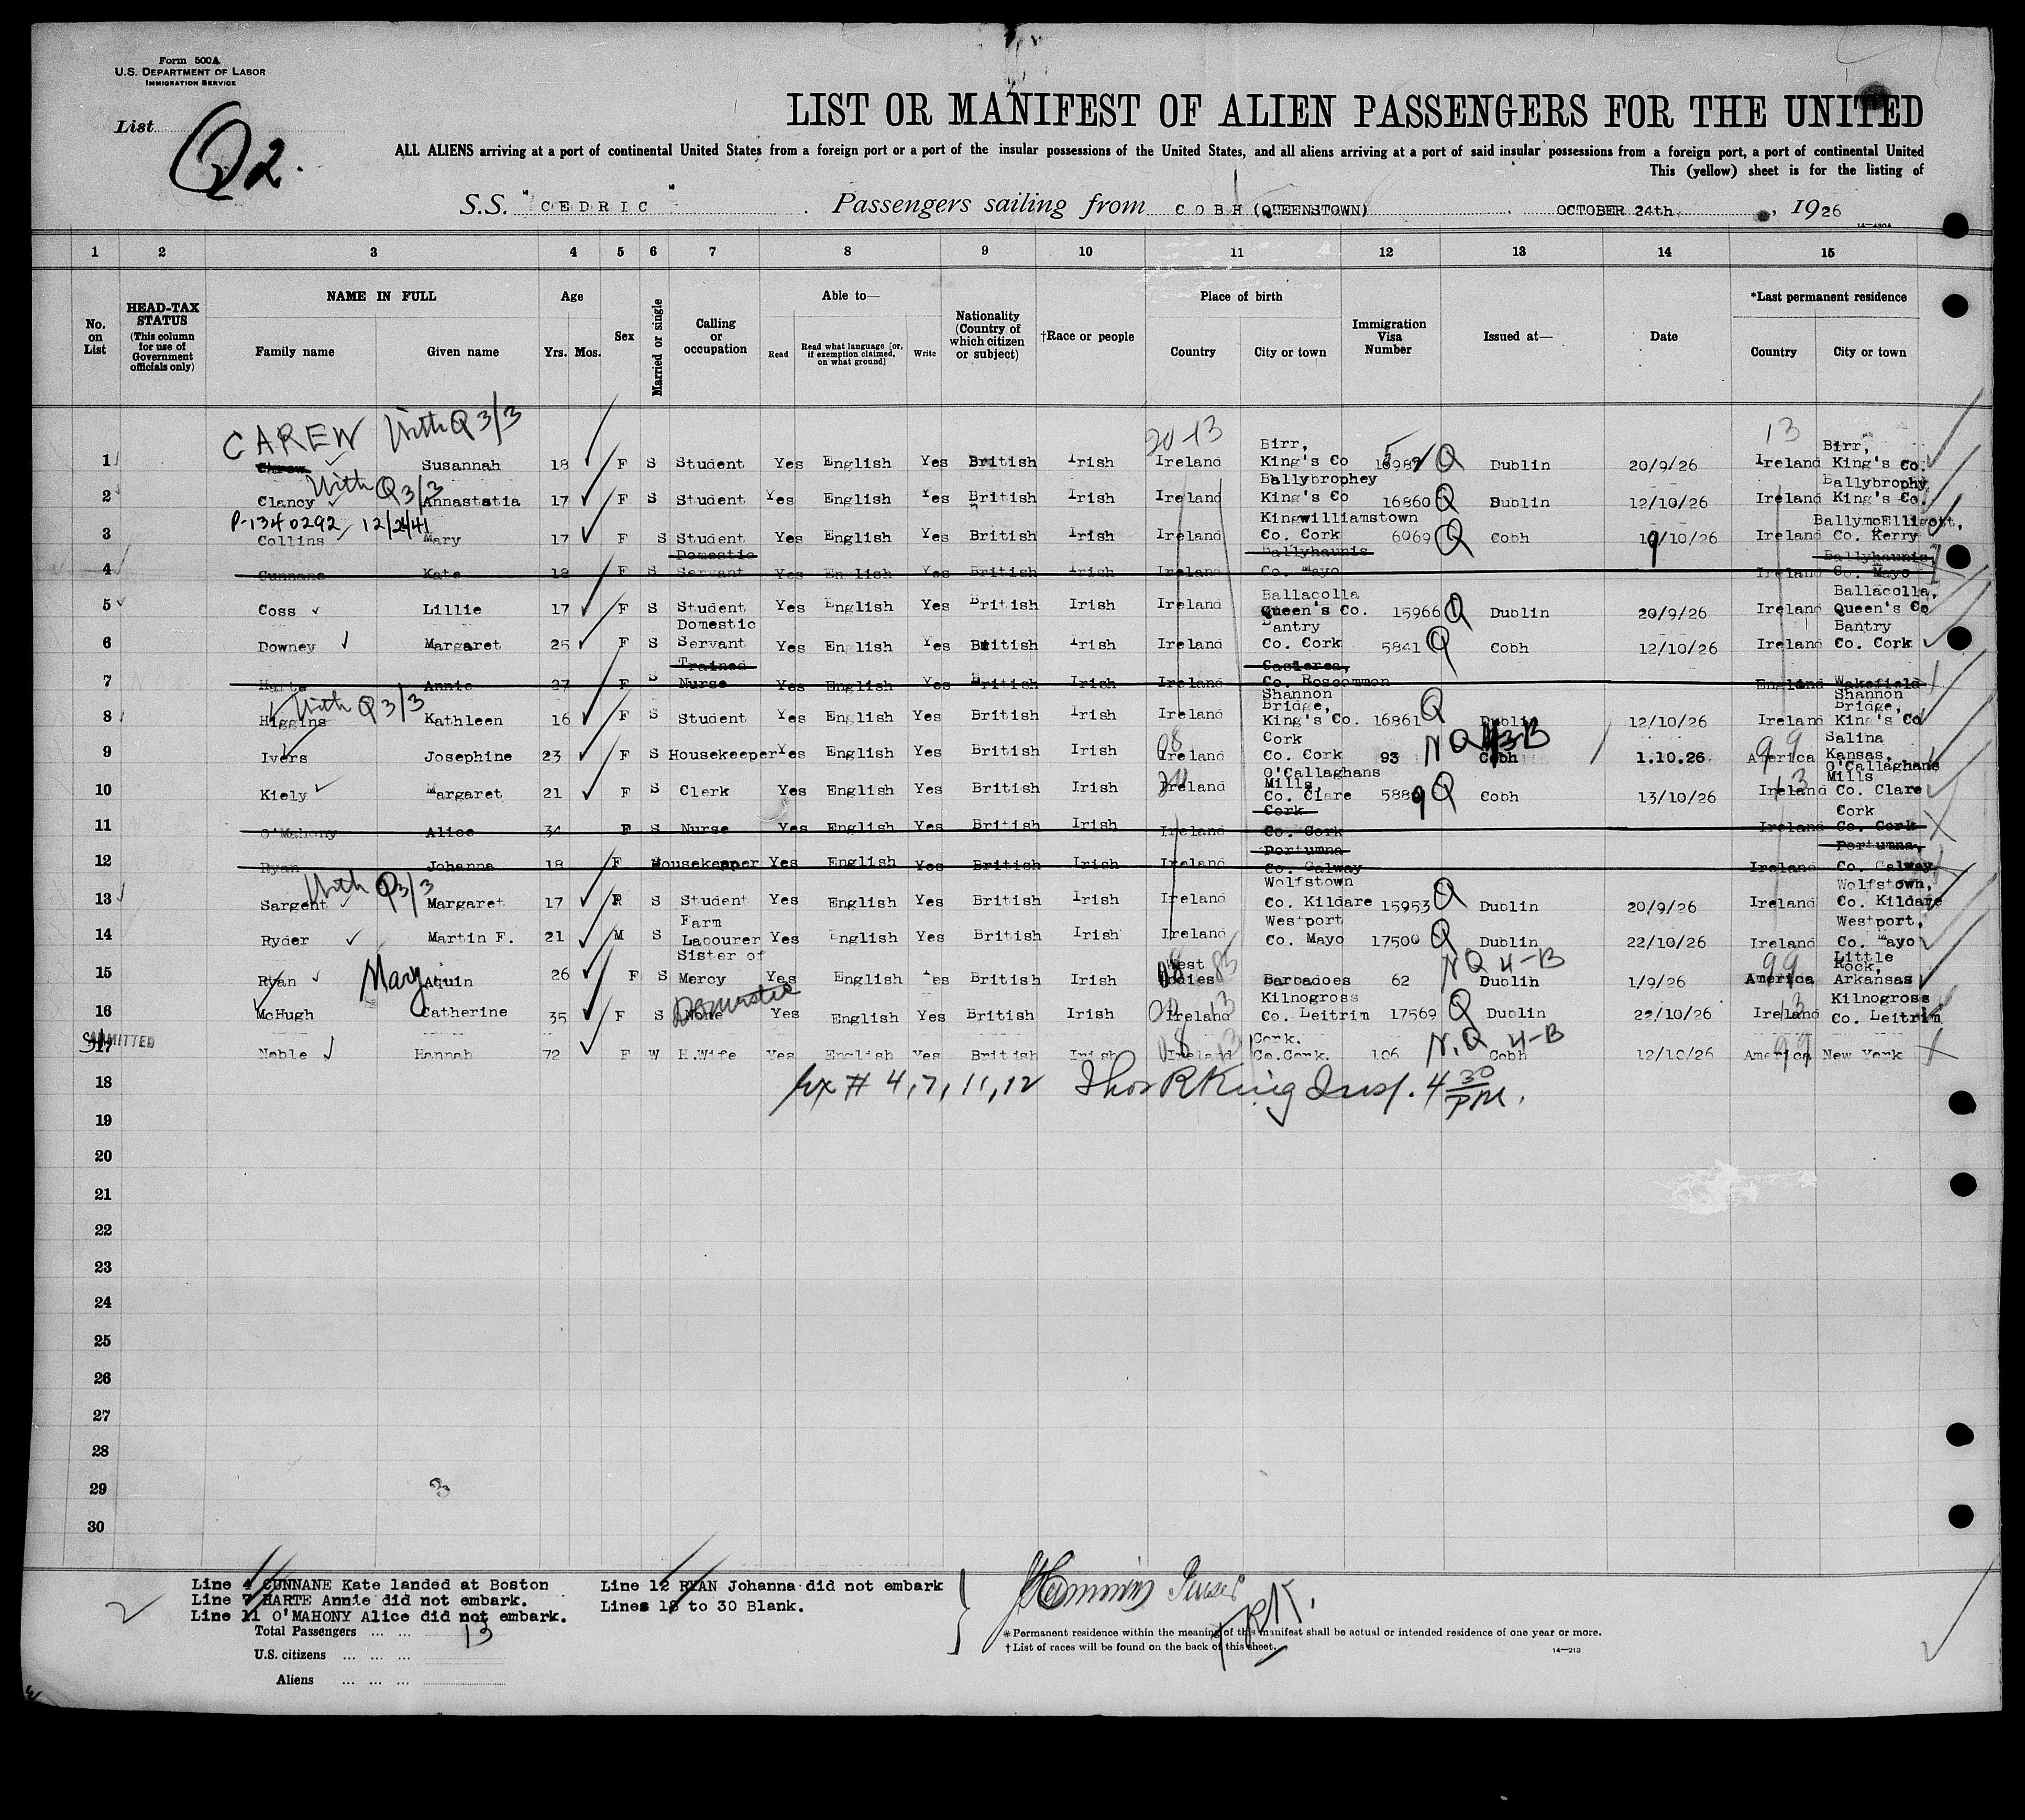 Form 500A
U.S. DEPARTMENT OF LABOR
IMMIGRATION SERVICE
List
Q2.
LIST OR MANIFEST OF ALIEN PASSENGERS FOR THE UNITED
ALL ALIENS arriving at a port of continental United States from a foreign port or a port of the insular possessions of the United States, and all aliens arriving at a port of said insular possessions from a foreign port, a port of continental United
This (yellow) sheet is for the listing of
S.S. "CEDRIC" Passengers sailing from COBH (QUEENSTOWN) OCTOBER 24th, 1926
14-430A
1 2 3 4 5 6 7 8 9 10 11 12 13 14 15
No. on List
HEAD-TAX STATUS (This column for use of Government officials only)
NAME IN FULL
Family name Given name
Age
Yrs. Mos.
Sex
Married or single
Calling or occupation
Able to—
Read Read what language [or, if exemption claimed, on what ground] Write
Nationality (Country of which citizen or subject)
†Race or people
Place of birth
Country City or town
Immigration Visa Number
Issued at—
Date
*Last permanent residence
Country City or town
CAREW With Q 3/3 20 13 13
1 Carew Susannah 18 F S Student Yes English Yes British Irish Ireland Birr, King's Co Q Dublin 20/9/26 Ireland Birr, King's Co.
With Q 3/3
2 Clancy Annastatia 17 F S Student Yes English Yes British Irish Ireland Ballybrophey King's Co 16860 Q Dublin 12/10/26 Ireland Ballybrophy King's Co.
P-1340292 12/24/41
3 Collins Mary 17 F S Student Yes English Yes British Irish Ireland Kingwilliamstown Co. Cork 6069 Q Cobh 19/10/26 Ireland BallymcElligott, Co. Kerry
4 Cunnane Kate 18 F S Domestic Servant Yes English Yes British Irish Ireland Ballyhaunis Co. Mayo Ireland Ballyhaunis Co. Mayo
5 Coss Lillie 17 F S Student Yes English Yes British Irish Ireland Ballacolla Queen's Co. 15966 Q Dublin 20/9/26 Ireland Ballacolla, Queen's Co
6 Downey Margaret 25 F S Domestic Servant Yes English Yes British Irish Ireland Bantry Co. Cork 5841 Q Cobh 12/10/26 Ireland Bantry Co. Cork
7 Harte Annie 27 F S Trained Nurse Yes English Yes British Irish Ireland Castlerea, Co. Roscommon England Wakefield
With Q 3/3
8 Higgins Kathleen 16 F S Student Yes English Yes British Irish Ireland Shannon Bridge, King's Co. 16861 Q Dublin 12/10/26 Ireland Shannon Bridge, King's Co
9 Ivers Josephine 23 F S Housekeeper Yes English Yes British Irish Ireland Cork Co. Cork 93 NQ 4-B Cobh 1.10.26 America 99 Salina Kansas,
10 Kiely Margaret 21 F S Clerk Yes English Yes British Irish Ireland O'Callaghans Mills, Co. Clare 5889 Q Cobh 13/10/26 Ireland 13 O'Callaghans Mills Co. Clare
11 O'Mahony Alice 34 F S Nurse Yes English Yes British Irish Ireland Cork Co. Cork Ireland Cork Co. Cork
12 Ryan Johanna 18 F Housekeeper Yes English Yes British Irish Ireland Portumna Co. Galway Ireland Portumna, Co. Galway
With Q3/3
13 Sargent Margaret 17 F S Student Yes English Yes British Irish Ireland Wolfstown Co. Kildare 15953 Q Dublin 20/9/26 Ireland Wolfstown, Co. Kildare
14 Ryder Martin F. 21 M S Farm Labourer Yes English Yes British Irish Ireland Westport Co. Mayo 17500 Q Dublin 22/10/26 Ireland Westport, Co. Mayo
15 Ryan Mary Aquin 26 F S Sister of Mercy Yes English Yes British Irish West Indies Barbadoes 62 NQ 4-B Dublin 1/9/26 America 99 Little Rock, Arkansas
16 McHugh Catherine 35 F S None Domestic Yes English Yes British Irish Ireland 13 Kilnogross Co. Leitrim 17569 Q Dublin 22/10/26 Ireland 13 Kilnogross Co. Leitrim
ADMITTED
17 Noble Hannah 72 F W H.Wife Yes English Yes British Irish Ireland Cork. Co.Cork. 106 N.Q 4-B Cobh 12/10/26 America 99 New York
18 Ex # 4, 7, 11, 12 Thos R King Insp. 4 30 PM.
19
20
21
22
23
24
25
26
27
28
29
30
3
Line 4 CUNNANE Kate landed at Boston
Line 7 HARTE Annie did not embark.
Line 11 O'MAHONY Alice did not embark.
Line 12 RYAN Johanna did not embark
Lines 18 to 30 Blank.
Total Passengers ... ... 13
U.S. citizens ... ... ...
Aliens ... ... ...
Purser
TRK.
*Permanent residence within the meaning of this manifest shall be actual or intended residence of one year or more.
†List of races will be found on the back of this sheet.
14—213